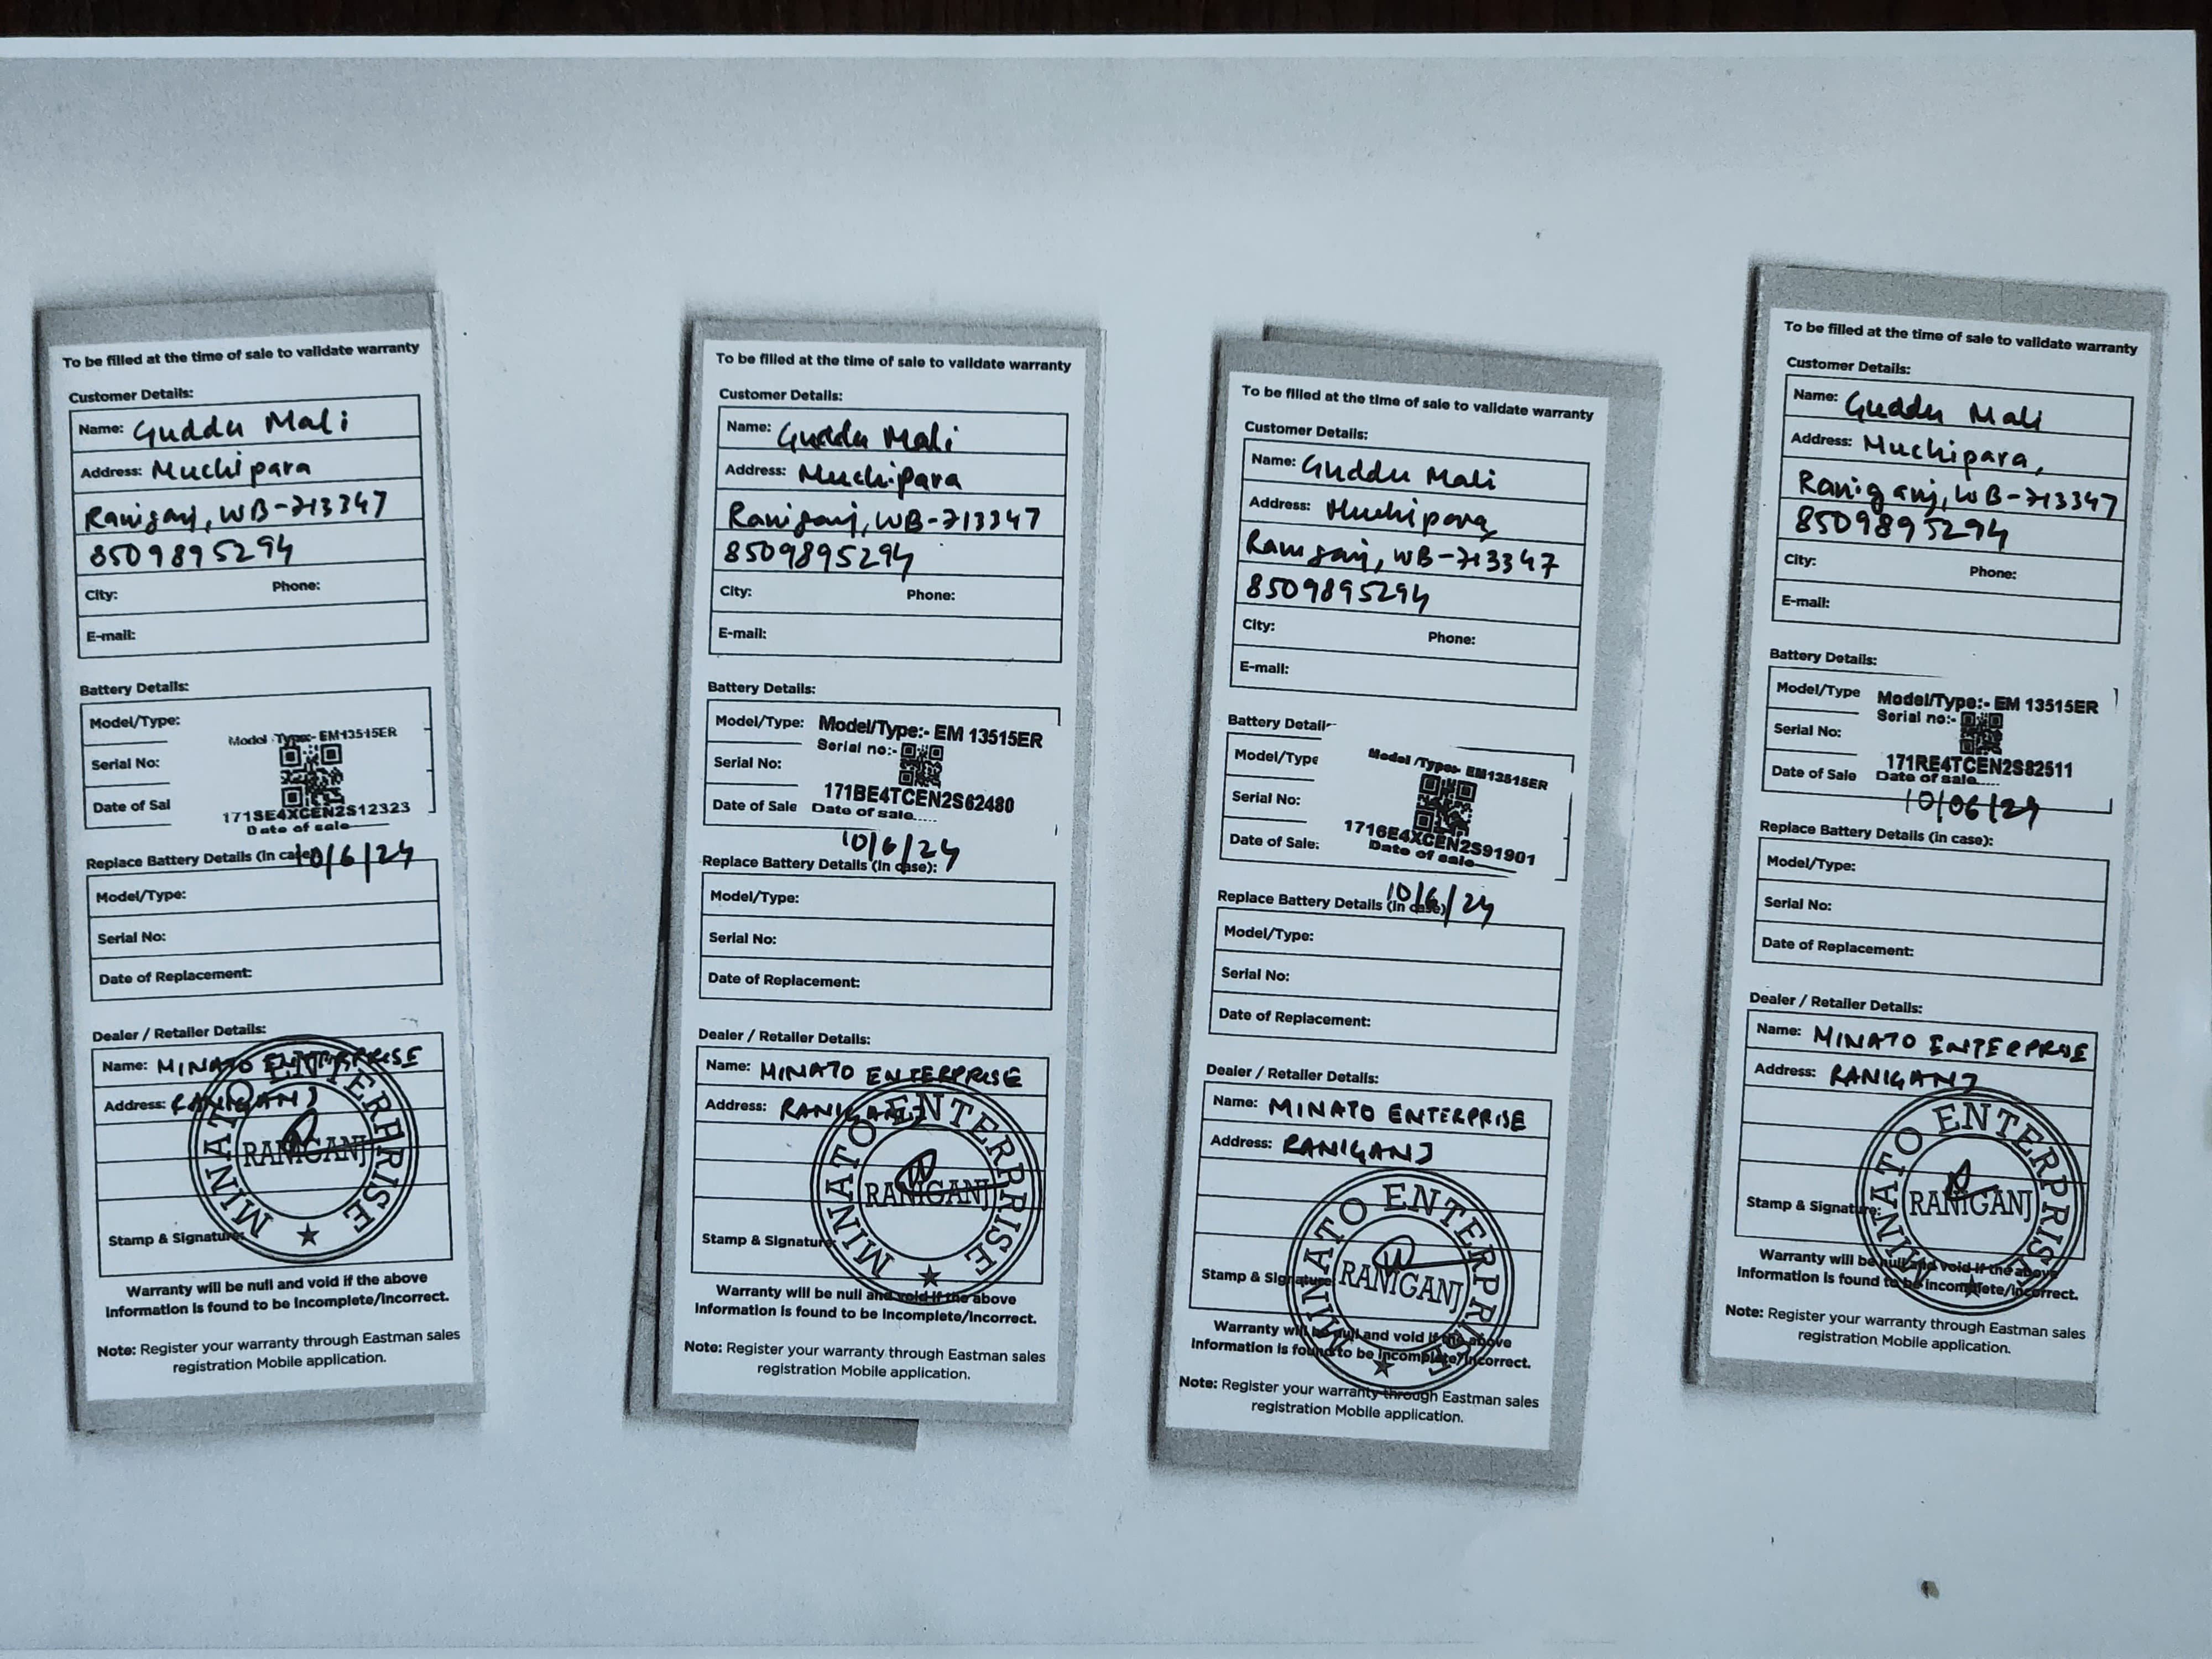 To be filled at the time of sale to validate warranty
Customer Details:
Name: Guddu Mali
Address: Muchipara
Raniganj, WB-713347
8509895294
City: Phone:
E-mail:
Battery Details:
Model/Type:
Model Type:- EM13515ER
Serial No:
171SE4XCEN2S12323
Date of Sal
Date of sale
10/6/24
Replace Battery Details (In case
Model/Type:
Serial No:
Date of Replacement:
Dealer / Retailer Details:
Name: MINATO ENTERPRISE
Address: RANIGANJ
MINATO ENTERPRISE
RANIGANJ
Stamp & Signature
Warranty will be null and void if the above
Information is found to be Incomplete/Incorrect.
Note: Register your warranty through Eastman sales
registration Mobile application.
To be filled at the time of sale to validate warranty
Customer Details:
Name: Guddu Mali
Address: Muchipara
Raniganj, WB-713347
8509895294
City: Phone:
E-mail:
Battery Details:
Model/Type: Model/Type:- EM 13515ER
Serial no:-
Serial No:
171BE4TCEN2S62480
Date of Sale Date of sale.....
10/6/24
Replace Battery Details (In case):
Model/Type:
Serial No:
Date of Replacement:
Dealer / Retailer Details:
Name: MINATO ENTERPRISE
Address: RANIGANJ
MINATO ENTERPRISE
RANIGANJ
Stamp & Signature
Warranty will be null and void if the above
Information is found to be Incomplete/Incorrect.
Note: Register your warranty through Eastman sales
registration Mobile application.
To be filled at the time of sale to validate warranty
Customer Details:
Name: Guddu Mali
Address: Muchipara
Raniganj, WB-713347
8509895294
City: Phone:
E-mail:
Battery Detail
Model/Type
Model /Type:- EM13515ER
Serial No:
1716E4XCEN2S91901
Date of Sale:
Date of sale
10/6/24
Replace Battery Details (In case)
Model/Type:
Serial No:
Date of Replacement:
Dealer / Retailer Details:
Name: MINATO ENTERPRISE
Address: RANIGANJ
MINATO ENTERPRISE
RANIGANJ
Stamp & Signature
Warranty will be null and void if the above
Information is found to be Incomplete/Incorrect.
Note: Register your warranty through Eastman sales
registration Mobile application.
To be filled at the time of sale to validate warranty
Customer Details:
Name: Guddu Mali
Address: Muchipara,
Raniganj, WB-713347
8509895294
City: Phone:
E-mail:
Battery Details:
Model/Type Model/Type:- EM 13515ER
Serial no:-
Serial No:
171RE4TCEN2S82511
Date of Sale Date of sale.....
10/06/24
Replace Battery Details (In case):
Model/Type:
Serial No:
Date of Replacement:
Dealer / Retailer Details:
Name: MINATO ENTERPRISE
Address: RANIGANJ
MINATO ENTERPRISE
RANIGANJ
Stamp & Signature:
Warranty will be null and void if the above
Information is found to be Incomplete/Incorrect.
Note: Register your warranty through Eastman sales
registration Mobile application.